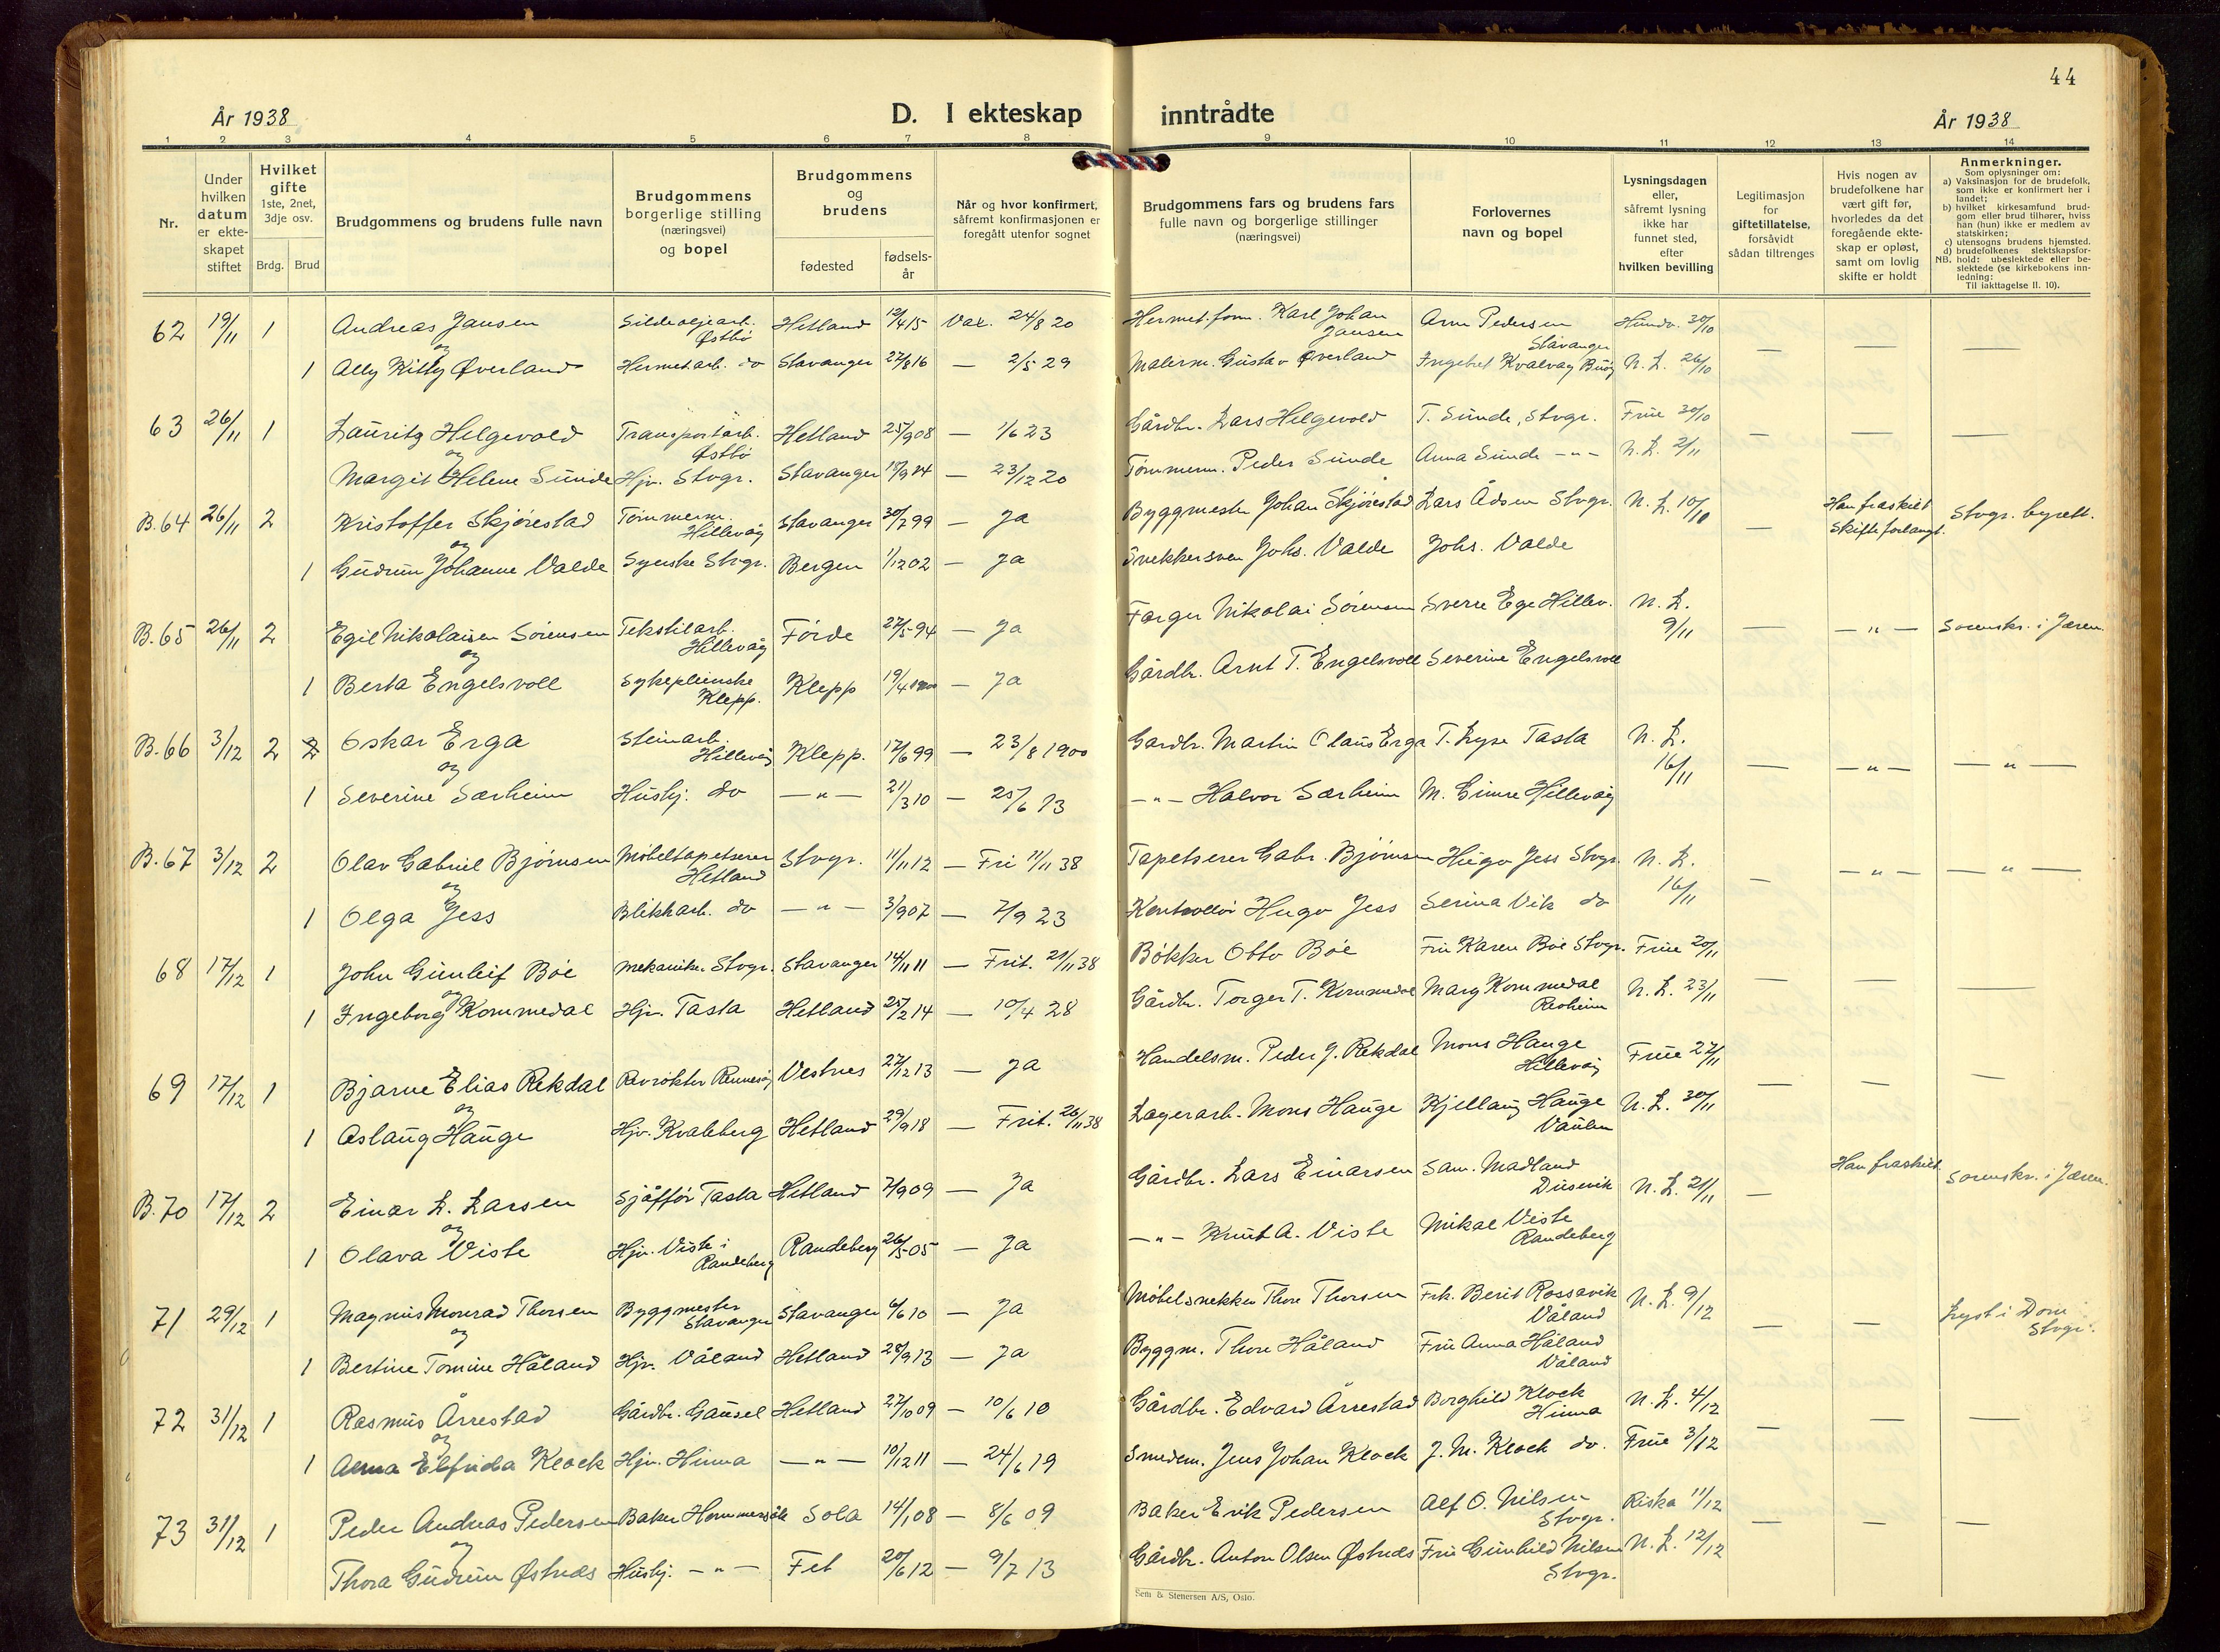 44
År 1938
D. I ekteskap inntrådte
År 1938
1 2 3 4 5 6 7 8 9 10 11 12 13 14
Nr.
Under hvilken datum er ekteskapet stiftet
Hvilket gifte 1ste, 2net, 3dje osv.
Brdg. Brud
Brudgommens og brudens fulle navn
Brudgommens borgerlige stilling (næringsvei) og bopel
Brudgommens og brudens
fødested
fødselsår
Når og hvor konfirmert, såfremt konfirmasjonen er foregått utenfor sognet
Brudgommens fars og brudens fars fulle navn og borgerlige stillinger (næringsvei)
Forlovernes navn og bopel
Lysningsdagen eller, såfremt lysning ikke har funnet sted, efter hvilken bevilling
Legitimasjon for giftetillatelse, forsåvidt sådan tiltrenges
Hvis nogen av brudefolkene har vært gift før, hvorledes da det foregående ekteskap er opløst, samt om lovlig skifte er holdt
Anmerkninger.
Som oplysninger om:
a) Vaksinasjon for de brudefolk, som ikke er konfirmert her i landet;
b) hvilket kirkesamfund brudgom eller brud tilhører, hviss han (hun) ikke er medlem av statskirken;
c) utensogns brudens hjemsted.
d) brudefolkenes slektskapsforhold: ubeslektede eller beslektede (se kirkebokens innledning:
NB.
Til iakttagelse II. 10).
62 19/11 1 Andreas Jansen Sildeoljearb. Østbø Hetland 12/4 15 Vax. 24/8 20 Hermet.form. Karl Johan Jansen Arne Pedersen Stavanger Hundv. 30/10 — — —
og
1 Ally Kitty Øverland Hermet.arb. do Stavanger 27/8 16 — 2/5 29 Malerm. Gustav Øverland Ingebret Kvalvag Buøy N. L. 26/10
63 26/11 1 Lauritz Helgevold Transportarb. Østbø Hetland 25/9 08 — 1/6 23 Gårdbr. Lars Helgevold T. Sunde, Stvgr. Frue 30/10 — — —
og
Margit Helene Sunde Hjv. Stvgr. Stavanger 18/9 14 — 23/12 20 Tømmerm. Peder Sunde Anna Sunde - " - N. L. 2/11
B. 64 26/11 2 Kristoffer Skjørestad Tømmerm. Hillevåg Stavanger 30/7 99 — Ja Byggmester Johan Skjørestad Lars Ådsen Stvgr. N. L. 10/10 — Han fraskilt Skifte forlangt. Stvgr. byrett.
og
1 Gudrun Johanne Valde Syerske Stvgr. Bergen 1/12 02 — Ja Snekkersven Johs. Valde Johs. Valde
B. 65 26/11 2 Egil Nikolaisen Sörensen Tekstilarb. Hillevåg Förde 27/5 94 — Ja Farger Nikolai Sörensen Sverre Ege Hillev. N. L. 9/11 — — " — Sorenskr. i Jæren.
og
1 Berta Engelsvoll Sykepleierske Klepp. Klepp 19/4 1900 — Ja Gårdbr. Arnt T. Engelsvoll Severine Engelsvoll
B. 66 3/12 2 Oskar Erga Steinarb. Hillevåg Klepp. 17/6 99 — 23/8 1900 Gardbr. Martin Olaus Erga T. Lyse Tasta N. L. 16/11 — — " — — " —
og
1 Severine Særheim Hushj. do — " — 21/3 10 — 25/6 13 — " — Halvor Særheim M. Gimre Hillevåg
B. 67 3/12 2 Olav Gabriel Bjørnsen Møbeltapetserer Hetland Stvgr. 11/11 12 — Fri 11/11 38 Tapetserer Gabr. Bjørnsen Hugo Jess Stvgr. N. L. 16/11 — — " — — " —
og
1 Olga Jess Blikkarb. do — " — 3/9 07 — 7/9 23 Kontrollör Hugo Jess Serina Vik do
68 17/12 1 John Gunleif Böe Mekaniker Stvgr. Stavanger 14/11 11 — Frit. 21/11 38 Bökker Otto Böe Fru Karen Böe Stvgr. Frue 20/11 — — —
og
1 Ingeborg Kommedal Hjv. Tasta Hetland 25/2 14 — 10/4 28 Gårdbr. Torger T. Kommedal Mary Kommedal Revheim N. L. 23/11
69 17/12 1 Bjarne Elias Rekdal Revrökter Rennesöy Vestnes 27/12 13 — Ja Handelsm. Peder J. Rekdal Mons Hauge Hillevåg Frue 27/11 — — —
og
1 Aslaug Hauge Hjv. Kvaleberg Hetland 29/9 18 — Frit. 26/11 38 Lagerarb. Mons Hauge Kjellaug Hauge Vaulen N. L. 30/11
B. 70 17/12 2 Einar L. Larsen Sjåffør Tasta Hetland 7/9 09 — Ja Gårdbr. Lars Einarsen Sam. Madland Dusevik N. L. 21/11 — Han fraskilt Sorenskr. i Jæren.
og
1 Olava Viste Hjv. Viste i Randeberg Randeberg 26/5 05 — Ja — " — Knut A. Viste Mikal Viste Randeberg
71 29/12 1 Magnus Monrad Thorsen Byggmester Stavanger Stavanger 6/6 10 — Ja Møbelsnekker Thore Thorsen Frk. Berit Rossavik Våland N. L. 9/12 — — Lyst i Dom Stvgr.
og
1 Bertine Tomine Håland Hjv. Våland Hetland 28/9 13 — Ja Byggm. Thore Håland Fru Anna Håland Våland
72 31/12 1 Rasmus Årrestad Gårdbr. Gausel Hetland 27/10 09 — 10/6 10 Gårdbr. Edvard Årrestad Borghild Klock Hinna N. L. 4/12 — — —
og
1 Alma Elfrida Klock Hjv. Hinna — " — 10/12 11 — 24/6 19 Smedm. Jens Johan Klock J. M. Klock do. Frue 3/12
73 31/12 1 Peder Andreas Pedersen Baker Hommersåk Sola 14/1 08 — 8/6 09 Baker Erik Pedersen Alf O. Nilsen Stvgr. Riska 11/12 — — —
og
Thora Gudrun Østreds Hushj. — " — Fet 20/6 12 — 9/7 13 Gårdbr. Anton Olsen Østreds Fru Gunhild Nilsen Stvgr. N. L. 12/12
Sem & Stenersen A/S, Oslo.